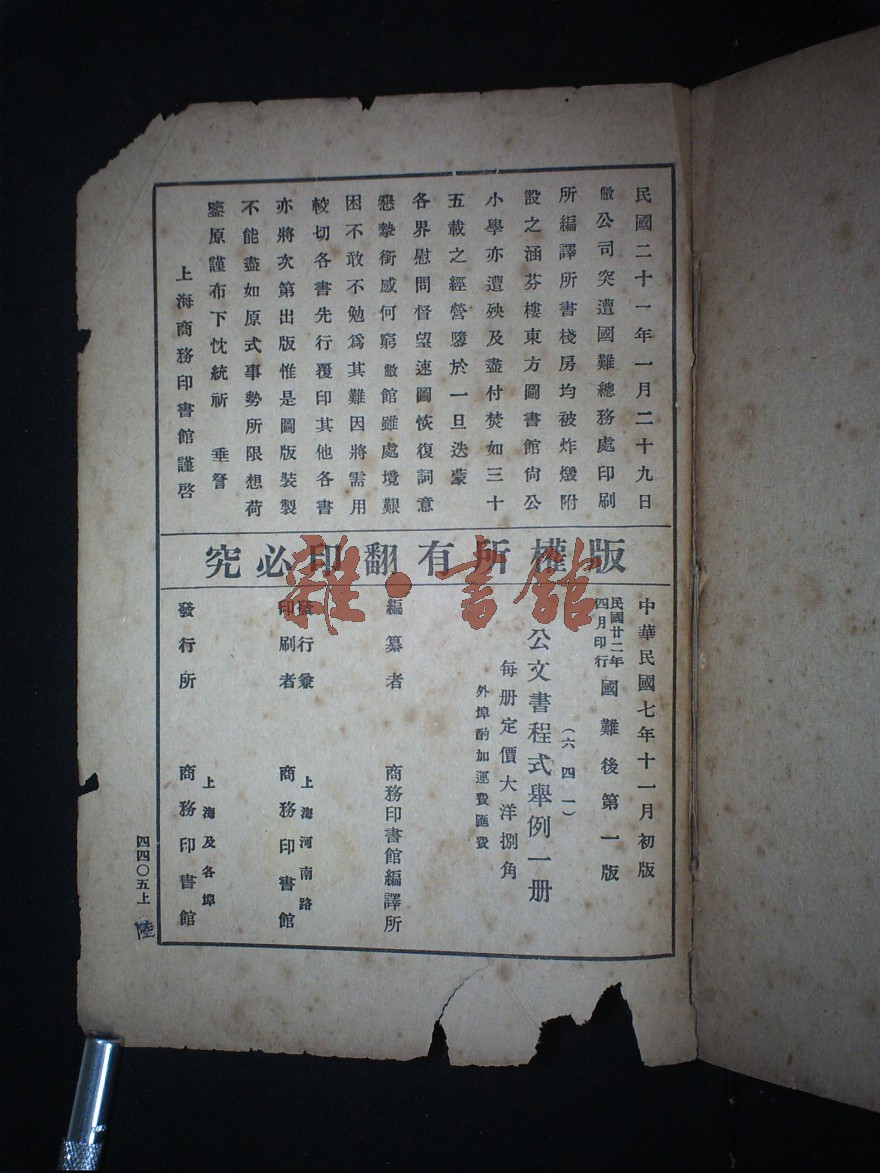 民國二十一年一月二十九日
敝公司突遭國難總務處印刷
所編譯所書棧房均被炸燬附
設之涵芬樓東方圖書館尙公
小學亦遭殃及盡付焚如三十
五載之經營隳於一旦迭蒙
各界慰問督望速圖恢復詞意
懇摯銜感何窮敝館雖處境艱
困不敢不勉爲其難因將需用
較切各書先行覆印其他各書
亦將次第出版惟是圖版裝製
不能盡如原式事勢所限想荷
鑒原謹布下忱統祈 垂詧
上海商務印書館謹啓
版權所有翻印必究
雜·書館
中華民國七年十一月初版
民國廿二年四月印行 國難後第一版
(六四一)
公文書程式舉例一册
每册定價大洋捌角
外埠酌加運費匯費
編纂者 商務印書館編譯所
發行兼印刷者 上海河南路 商務印書館
發行所 上海及各埠 商務印書館
四四〇五上
陸